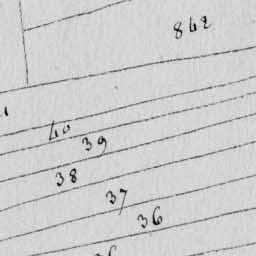 842
40
39
38
37
36